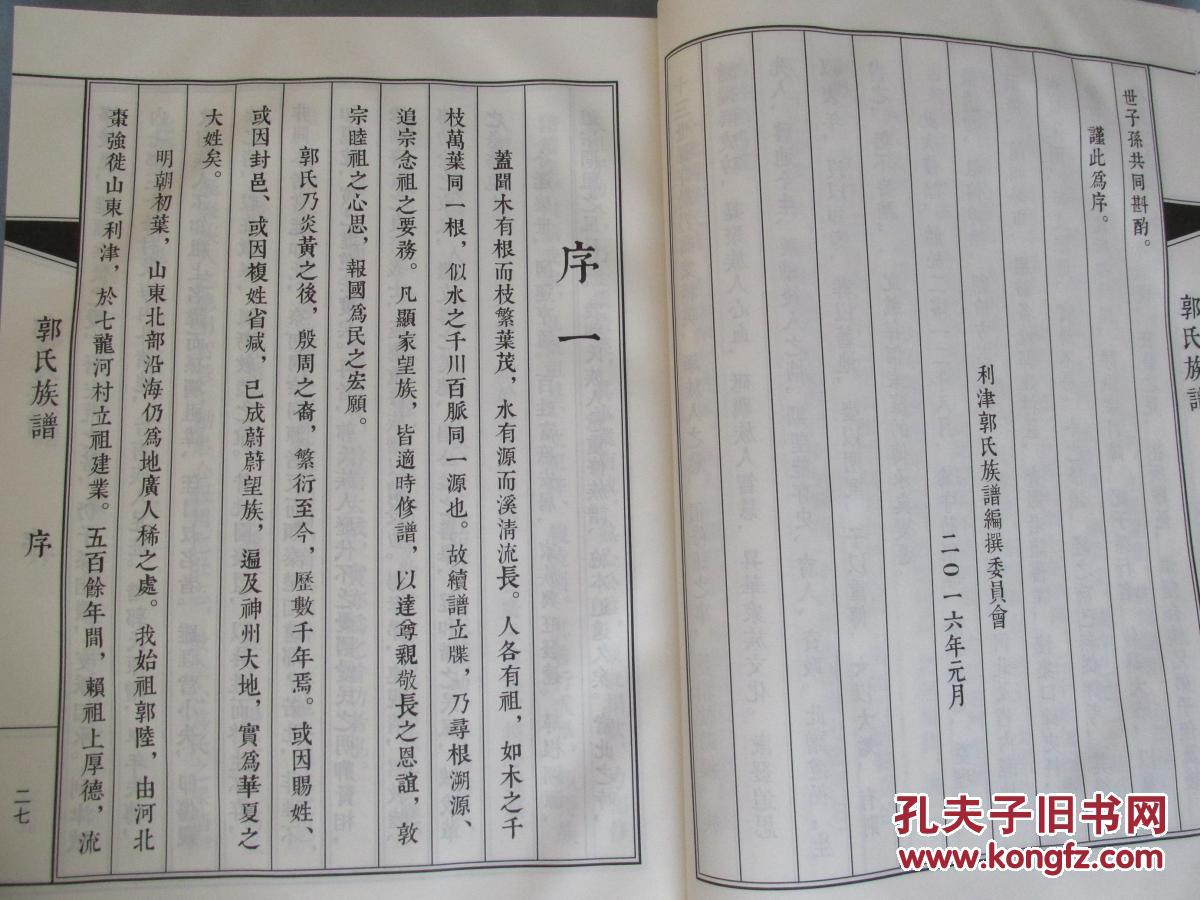 世子孫共同斟酌。
謹此爲序。
利津郭氏族譜編撰委員會
二〇一六年元月
郭氏族譜
序一
蓋聞木有根而枝繁葉茂，水有源而溪淸流長。人各有祖，如木之千
枝萬葉同一根，似水之千川百脈同一源也。故續譜立牒，乃尋根溯源、
追宗念祖之要務。凡顯家望族，皆適時修譜，以達尊親敬長之恩誼，敦
宗睦祖之心思，報國爲民之宏願。
郭氏乃炎黃之後，殷周之裔，繁衍至今，歷數千年焉。或因賜姓、
或因封邑、或因複姓省減，已成蔚蔚望族，遍及神州大地，實爲華夏之
大姓矣。
明朝初葉，山東北部沿海仍爲地廣人稀之處。我始祖郭陸，由河北
棗強徙山東利津，於七龍河村立祖建業。五百餘年間，賴祖上厚德，流
郭氏族譜
序
二七
孔夫子旧书网
www.kongfz.com